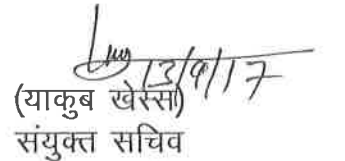 13/9/17
(याकुब खेस्सो)
संयुक्त सचिव